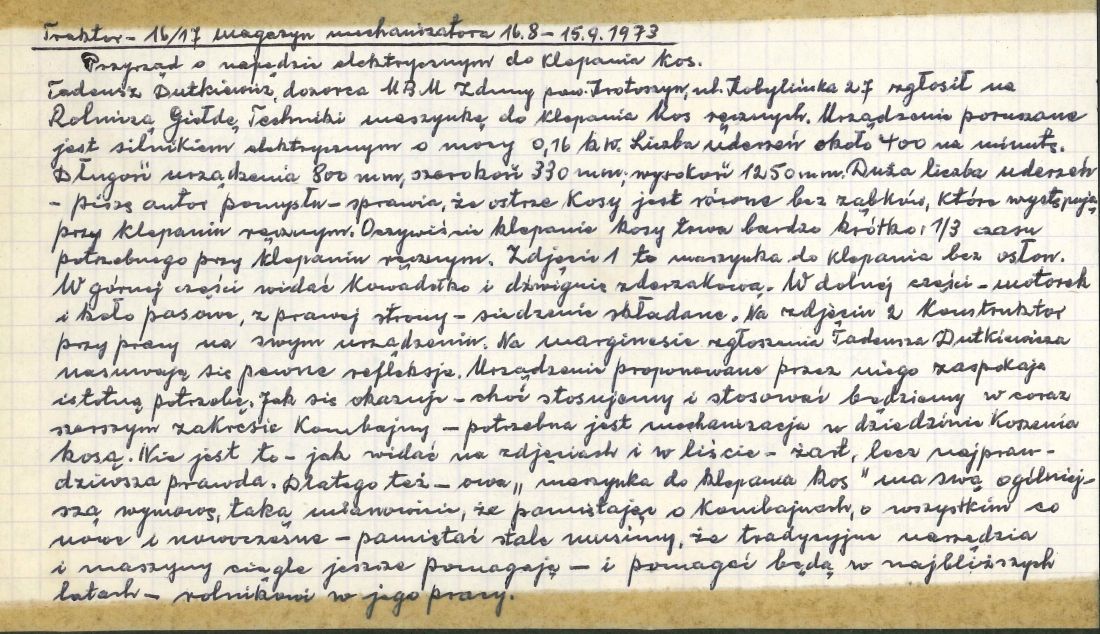 Traktor - 16/17 magazyn mechanizatora 16.8 - 15.9.1973
Przyrząd o napędzie elektrycznym do klepania kos.
Tadeusz Dutkiewicz, dozorca MBM Zduny pow. Krotoszyn, ul. Kobylińska 27 zgłosił na
Rolniczą Giełdę Techniki maszynkę do klepania kos ręcznych. Urządzenie poruszane
jest silnikiem elektrycznym o mocy 0,16 kW. Liczba uderzeń około 400 na minutę.
Długość urządzenia 800 mm, szerokość 330 mm, wysokość 1250 mm. Duża liczba uderzeń
- pisze autor pomysłu - sprawia, że ostrze kosy jest równe bez ząbków, które występują
przy klepaniu ręcznym. Oczywiście klepanie kosy trwa bardzo krótko: 1/3 czasu
potrzebnego przy klepaniu ręcznym. Zdjęcie 1 to maszynka do klepania bez osłon.
W górnej części widać kowadełko i dźwignię zderzakową. W dolnej części - motorek
i koło pasowe, z prawej strony - siedzenie składane. Na zdjęciu 2 Konstruktor
przy pracy na swym urządzeniu. Na marginesie zgłoszenia Tadeusza Dutkiewicza
nasuwają się pewne refleksje. Urządzenie proponowane przez niego zaspokaja
istotną potrzebę. Jak się okazuje - choć stosujemy i stosować będziemy w coraz
szerszym zakresie Kombajny - potrzebna jest mechanizacja w dziedzinie Koszenia
kosą. Nie jest to - jak widać na zdjęciach i w liście - żart, lecz najpraw-
dziwsza prawda. Dlatego też - owa „maszynka do klepania kos" ma swą ogólniej-
szą wymowę, taką mianowicie, że pamiętając o Kombajnach, o wszystkim co
nowe i nowoczesne - pamiętać stale musimy, że tradycyjne narzędzia
i maszyny ciągle jeszcze pomagają - i pomagać będą w najbliższych
latach - rolnikowi w jego pracy.